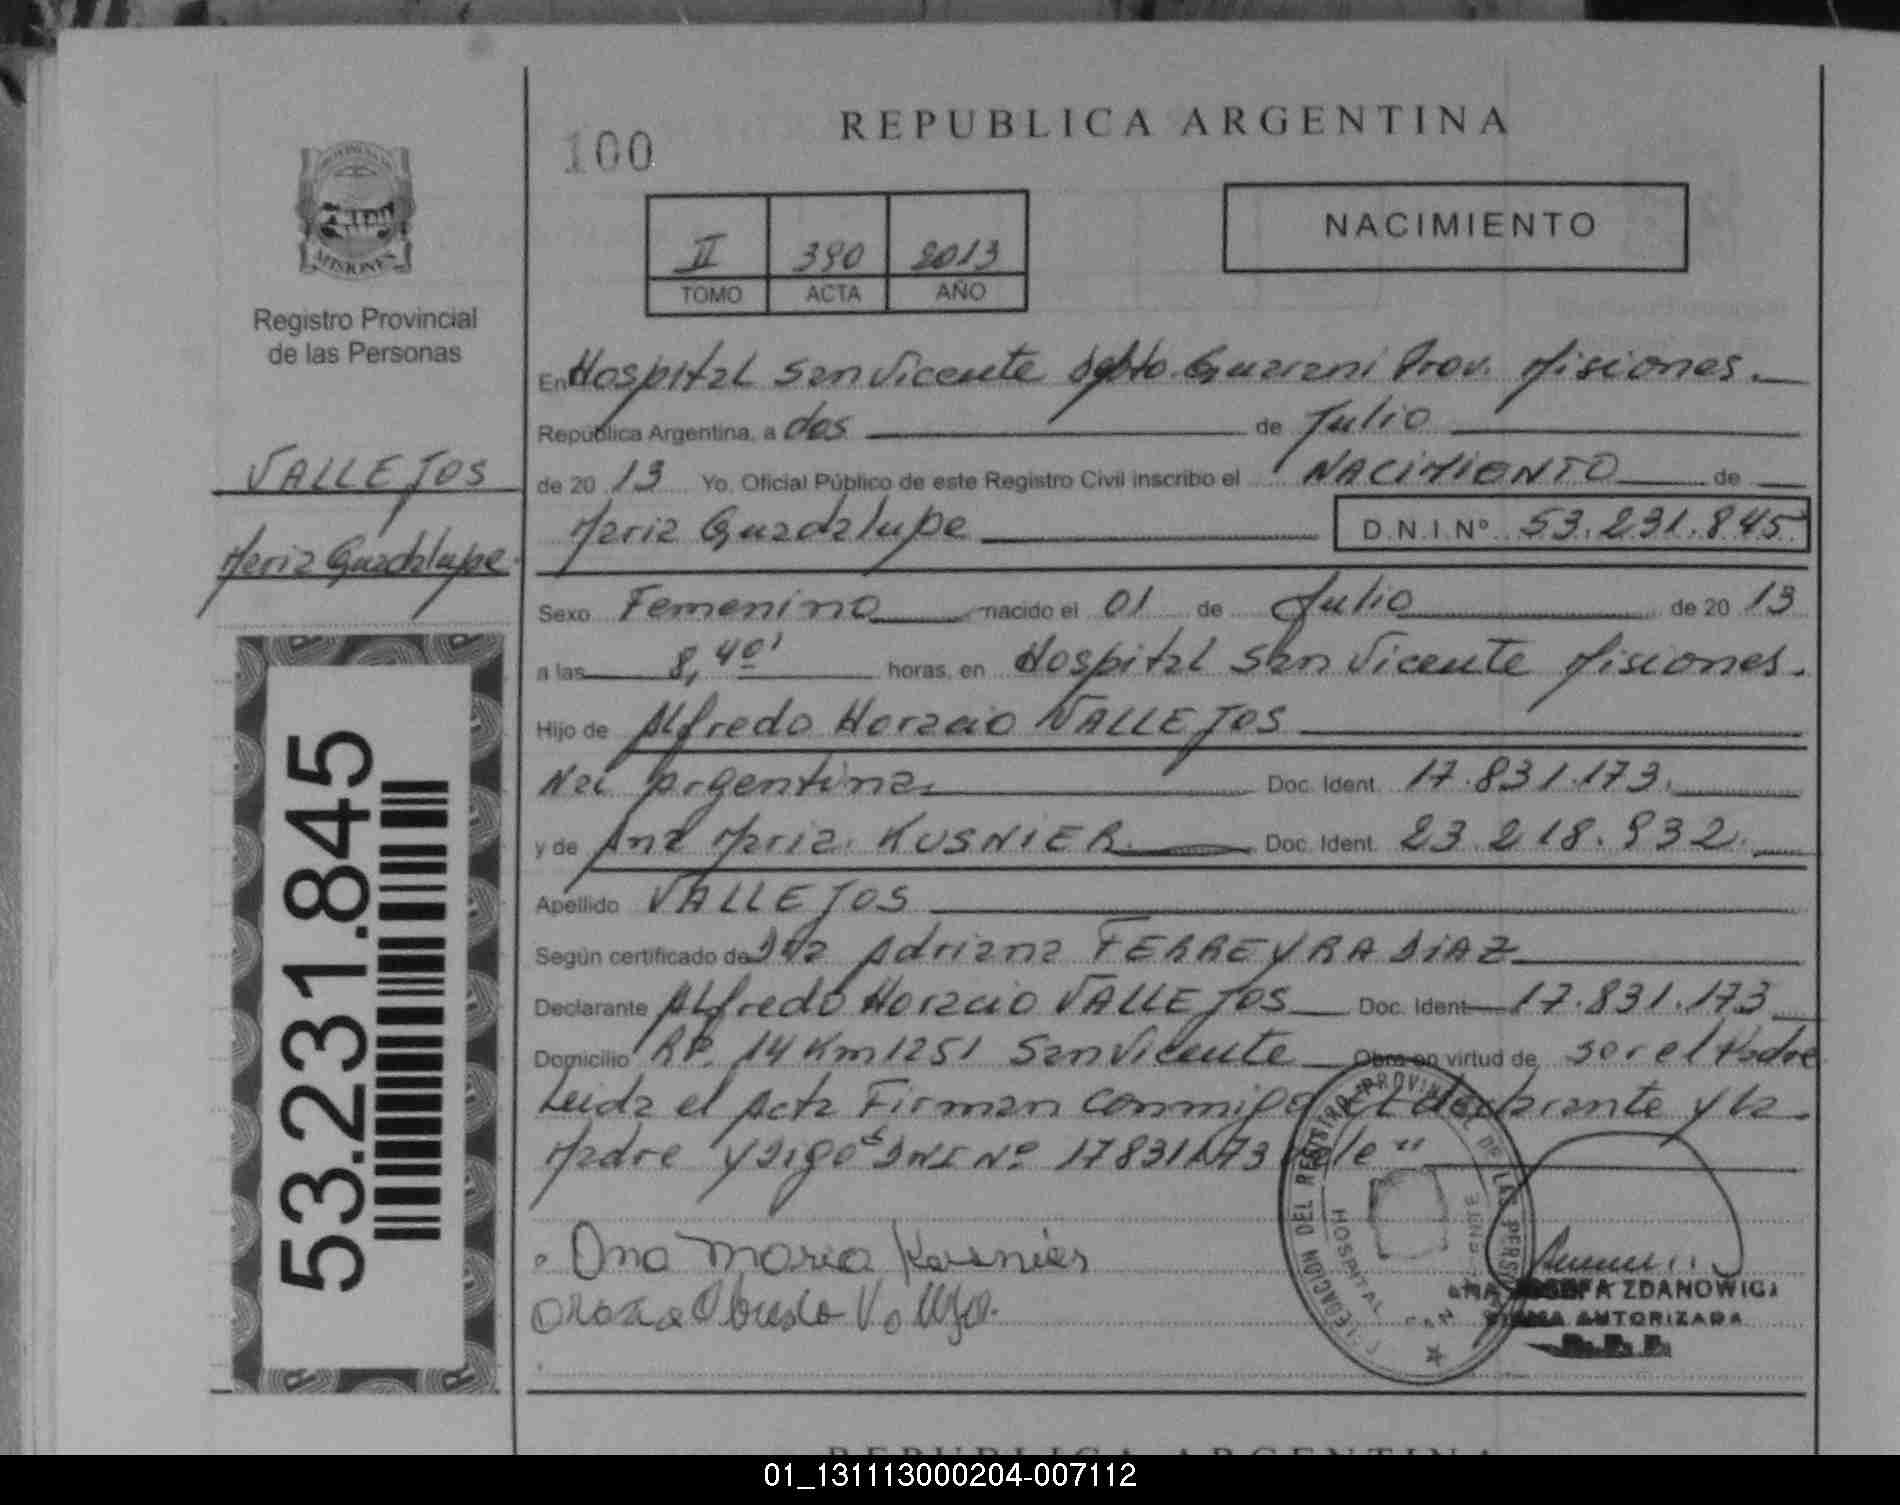 REPUBLICA ARGENTINA
100
NACIMIENTO
II 390 2013
TOMO ACTA AÑO
MISIONES
Registro Provincial
de las Personas
VALLEJOS
Maria Guadalupe
53.231.845
En Hospital San Vicente Dpto. Guarani Prov. Misiones.
República Argentina, a dos de Julio
de 20 13 Yo, Oficial Público de este Registro Civil inscribo el NACIMIENTO de
Maria Guadalupe D.N.I. Nº 53.231.845
Sexo Femenino nacido el 01 de Julio de 20 13
a las 8,40' horas, en Hospital San Vicente Misiones.
Hijo de Alfredo Horacio VALLEJOS
Nac Argentina. Doc. Ident. 17.831.173.
y de Ana Maria. KUSNIER. Doc. Ident. 23.218.932.
Apellido VALLEJOS
Según certificado de Dra Adriana FERREYRA DIAZ
Declarante Alfredo Horacio VALLEJOS Doc. Ident 17.831.173
Domicilio RP. 14 Km 1251 San Vicente Obra en virtud de ser el Padre
Leida el Acta Firman conmigo el declarante y la
Madre y Digo "DNI Nº 17831173 Vale"
Ana Maria Kusnier
DELEGACION DEL REGISTRO PROVINCIAL DE LAS PERSONAS
HOSPITAL SAN VICENTE
ANA JOSEFA ZDANOWICZ
FIRMA AUTORIZADA
R.P.P.
REPUBLICA ARGENTINA
01_131113000204-007112